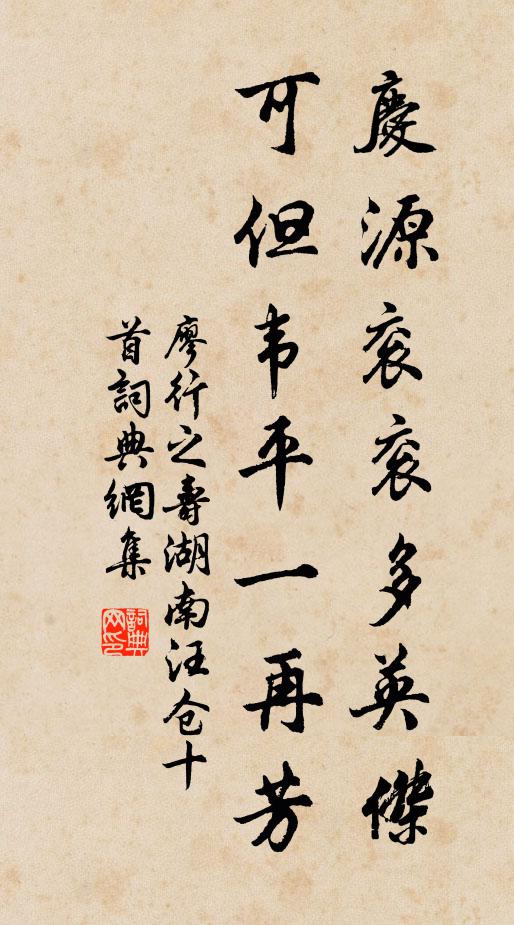 慶源衮衮多英傑
可但韦平一再芳
廖行之壽湖南汪仓十
首詞典網集
詞典网印